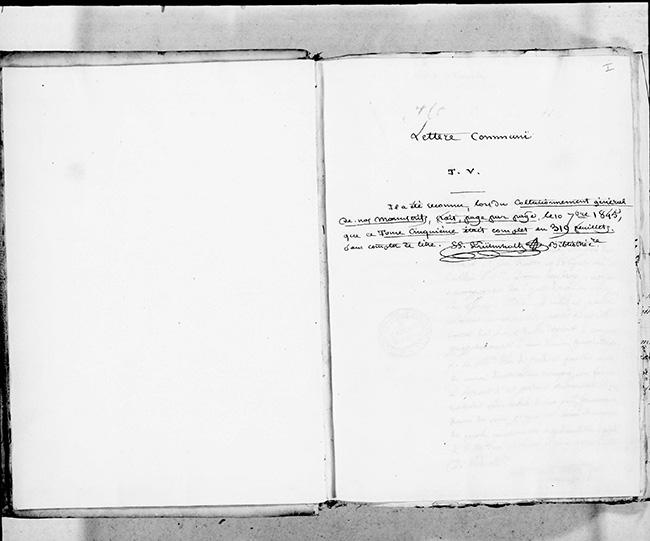 I
Lettere Communi
T. V.
Il a été reconnu, lors du Collationnement général
de nos Manuscrits, fait page par page le 10 7bre 1845,
que ce Tome Cinquième était complet en 319 feuillets,
sans compter le titre.